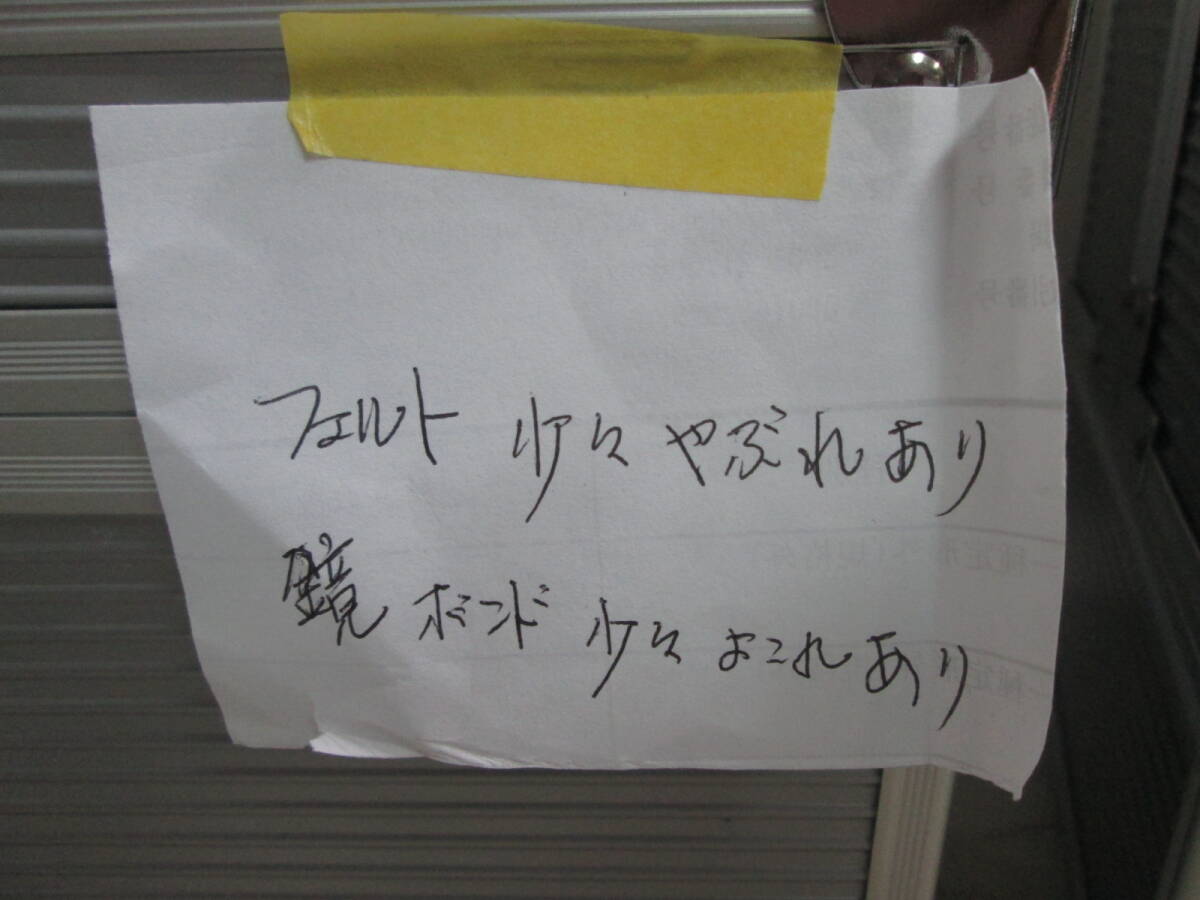 フェルト 少々 やぶれあり
鏡 ボンド 少々 よごれあり